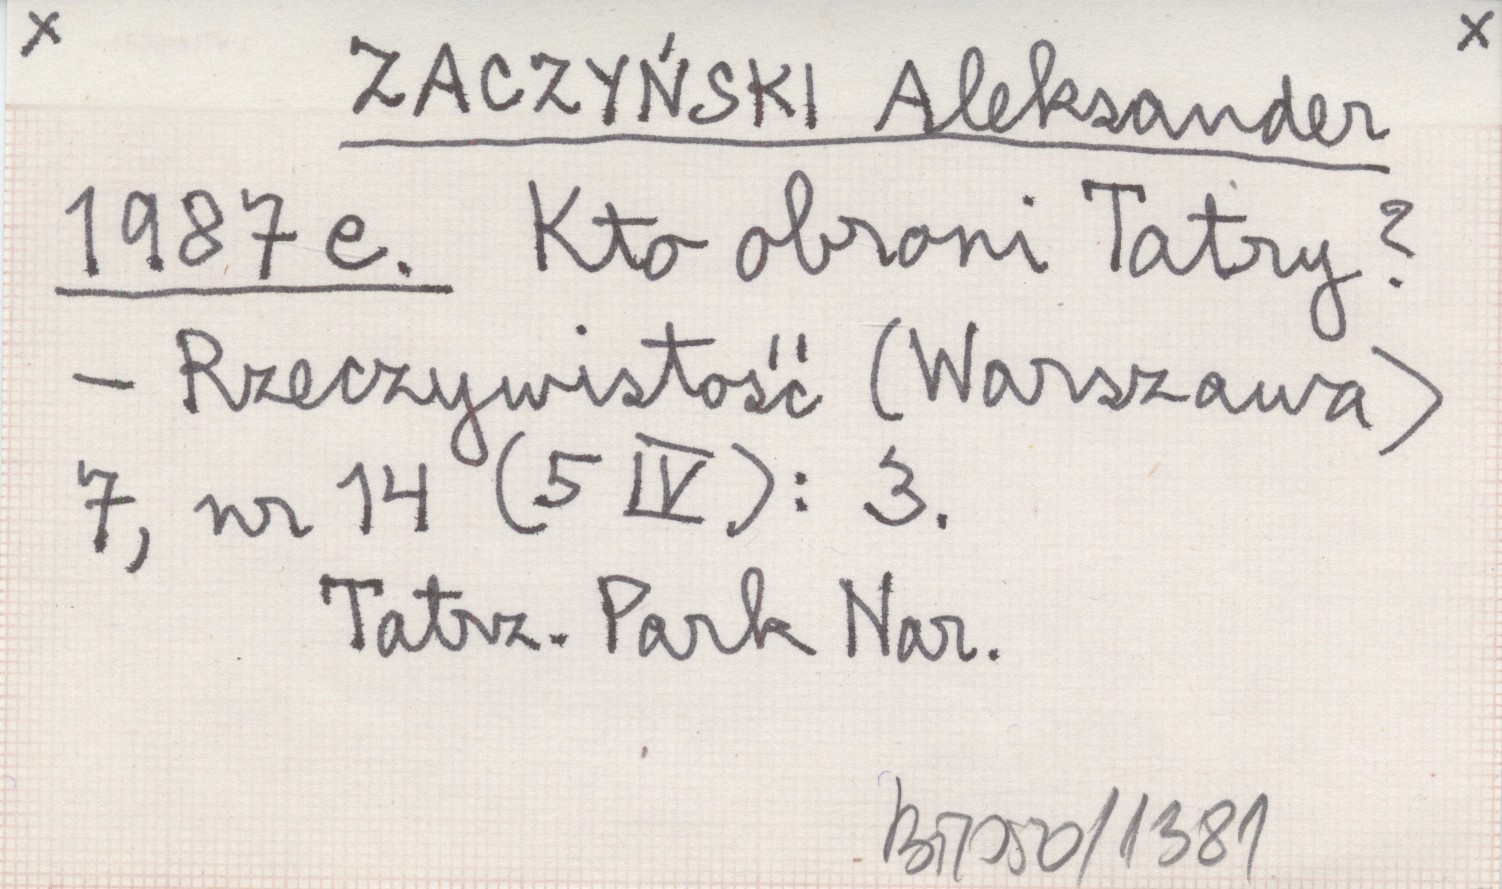 x x
ZACZYŃSKI Aleksander
1987 e. Kto obroni Tatry?
– Rzeczywistość (Warszawa)
7, nr 14 (5 IV): 3.
Tatrz. Park Nar.
/1381